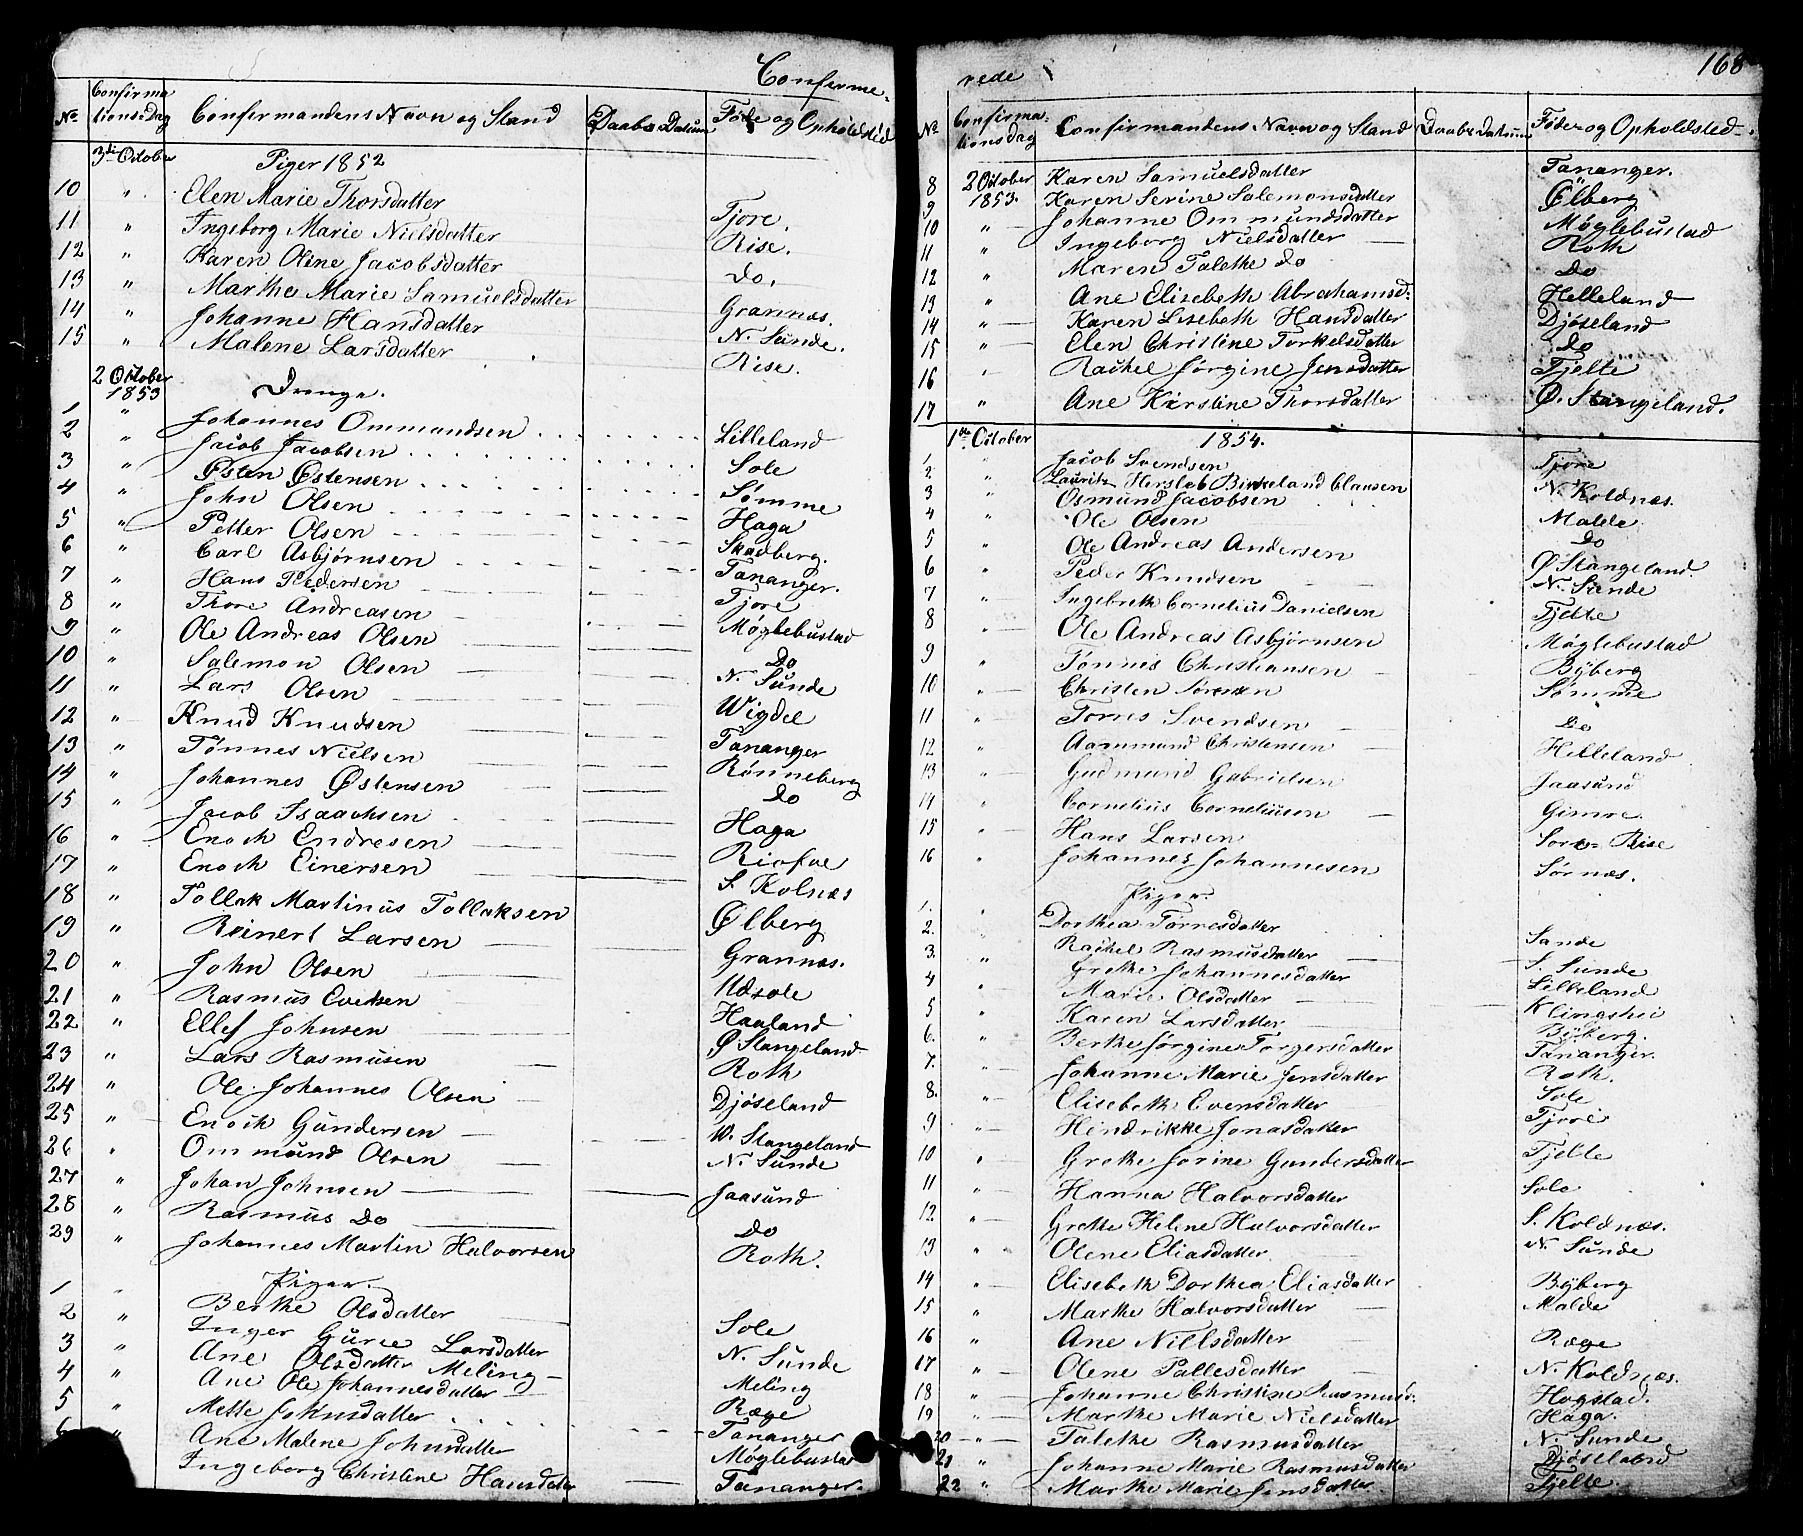 Confirme-
No Confirmationsdag Confirmandens Navn og Stand Daabs Datum Føde og Opholdsted
3di October Piger 1852
10 " Elen Marie Thorsdatter Tjore.
11 " Ingeborg Marie Nielsdatter Rise.
12 " Karen Oline Jacobsdatter Do.
13 " Marthe Marie Samuelsdatter Grannæs.
14 " Johanne Hansdatter N. Sunde.
15 " Malene Larsdatter Rise.
2 October 1853 Drenge.
1 " Johannes Ommundsen Lilleland
2 " Jacob Jacobsen Sole
3 " Østen Østensen Sømme
4 " John Olsen Haga
5 " Petter Olsen Skadberg.
6 " Carl Asbjørnsen Tananger.
7 " Hans Pedersen Tjore
8 " Thore Andreasen Møglebustad
9 " Ole Andreas Olsen Do
10 " Salemon Olsen N. Sunde
11 " Lars Olsen Wigdel
12 " Knud Knudsen Tananger
13 " Tønnes Nielsen Rønneberg
14 " Johannes Østensen Do
15 " Jacob Isaachsen Haga
16 " Enoch Endresen
17 " Enoch Einersen S. Kolnæs
18 " Tollak Martinus Tollaksen Ølberg
19 " Reinert Larsen Grannæs.
20 " John Olsen Udsole
21 " Rasmus Evertsen Haaland
22 " Ellef Johnsen Ø Stangeland
23 " Lars Rasmusen Roth
24 " Ole Johannes Olsen Djøseland
25 " Enoch Gundersen W. Stangeland
26 " Ommund Olsen N. Sunde
27 " Johan Johnsen Jaasund
28 " Rasmus Do Do
29 " Johannes Martin Halvorsen Roth.
Piger.
1 " Berthe Olsdatter Sole
2 " Inger Gurie Larsdatter N. Sunde
3 " Ane Olsdatter Meling Meling
4 " Ane Ole Johannesdatter Ræge
5 " Mette Johnsdatter Tananger
6 " Ane Malene Johnsdatter Møglebustad
Ingeborg Christine Hansdatter Tananger.
rede 168
No Confirmationsdag Confirmandens Navn og Stand Daabsdatum Føde og Opholdsted
8 2 October 1853. Karen Samuelsdatter Tananger.
9 Karen Serine Salemonsdatter Ølberg
10 " Johanne Ommundsdatter Møglebustad
11 " Ingeborg Nielsdatter Roth
12 " Maren Talethe Do Do
13 " Ane Elisebeth Abrahamsd: Helleland
14 " Karen Lisebeth Hansdatter Djøseland
15 " Elen Christine Torkelsdatter Do
16 " Rachel Jørgine Jensdatter Tjelte
17 " Ane Kirstine Thorsdatter Ø. Stangeland.
1ste October 1854.
1. " Jacob Svendsen Tjore
2. " Lauritz Hersleb Birkeland Clausen N. Koldnæs.
3 " Osmund Jacobsen Malde
4 " Ole Olsen Do
5 " Ole Andreas Andersen Ø Stangeland.
6 " Peder Knudsen N. Sunde
7 " Ingebreth Cornelius Danielsen Tjelte
8 " Ole Andreas Asbjørnsen Møglebustad
9 " Tønnis Christiansen Byberg
10 " Christen Sørensen Sømme
11 " Torres Svendsen Do
12 " Aanmund Christensen Helleland
13 " Gudmund Gabrielsen Jaasund
14 " Cornelius Corneliusen Gimre
15 " Hans Larsen Rise
16 " Johannes Johannesen Sørnæs.
Piger.
1. " Dorthea Torresdatter Sande
2. " Rachel Rasmusdatter S. Sunde
3. " Grethe Johannesdatter Lilleland
4 " Marie Olsdatter Klingshei
5 " Karen Larsdatter Byberg.
6. " Berthe Jørgine Torgersdatter Tananger.
7. " Johanne Marie Jensdatter Roth.
8. " Elisebeth Evensdatter Sole
9 " Hendrikke Jonasdatter Tjore
10 " Grethe Jorine Gundersdatter Tjelte
11 " Hanna Halvorsdatter Sole
12. " Grethe Helene Halvorsdatter S. Koldnæs.
13 " Olene Eliasdatter N. Sunde
14 " Elisebeth Dorthea Eliasdatter Byberg
15 " Marthe Halvorsdatter Malde
16 " Ane Nillsdatter Ræge
17 " Olene Pallesdatter N. Koldnæs.
18 " Johanne Christine Rasmusd. Hogstad.
19 " Marthe Marie Nielsdatter Haga.
20 " Talethe Rasmusdatter N. Sunde
21 " Johanne Marie Rasmusdatter Djøseland
22 " Marthe Marie Jensdatter Tjelte